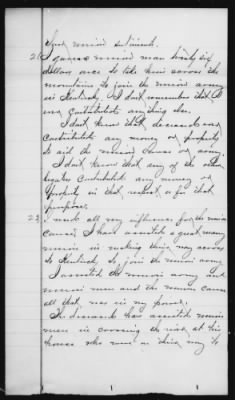 Union sentiment.
21 I gave a union man twenty six
dollars once to take him across the
mountains to join the union army
in Kentucky. I don't remember that I
ever contributed any thing else.
I don't know that decedent ever
contributed any money or property
to aid the union cause or army.
I don't know that any of the other
legatees contributed any money or
property in that respect or for that
purpose.
22 I used all my influence for the union
cause. I have assisted a great many
union in making their way across
to Kentucky to join the union army
I assisted the union army and
union men and the union cause
all that was in my power.
The decedent has assisted union
men in crossing the river at his
house who were on their way to